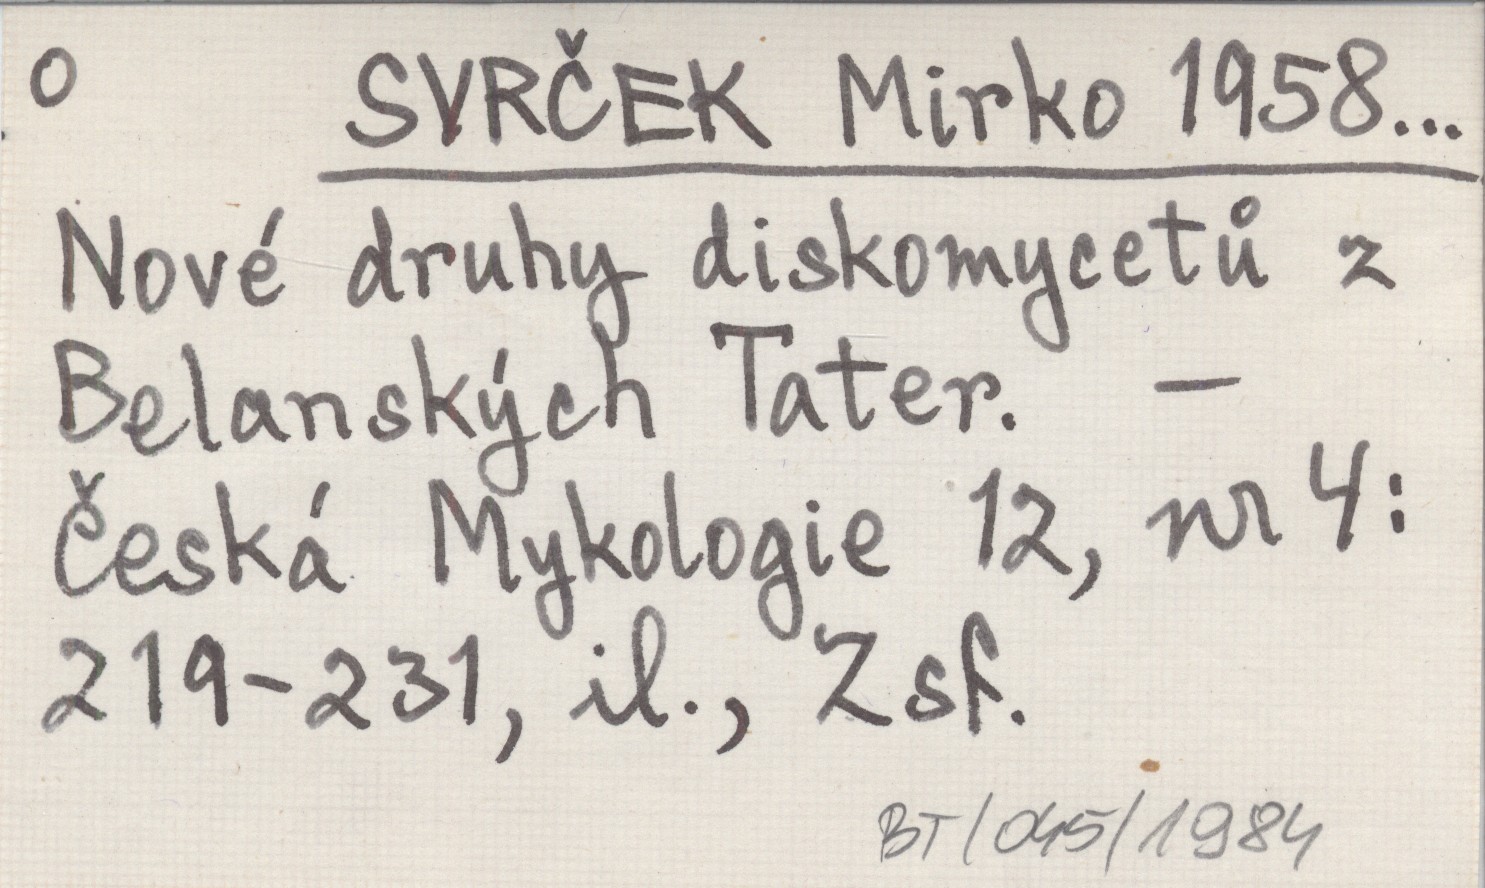 O SVRČEK Mirko 1958...
Nové druhy diskomycetů z
Belanských Tater. –
Česká Mykologie 12, nr 4:
219-231, il., Zsf.
BT/045/1984